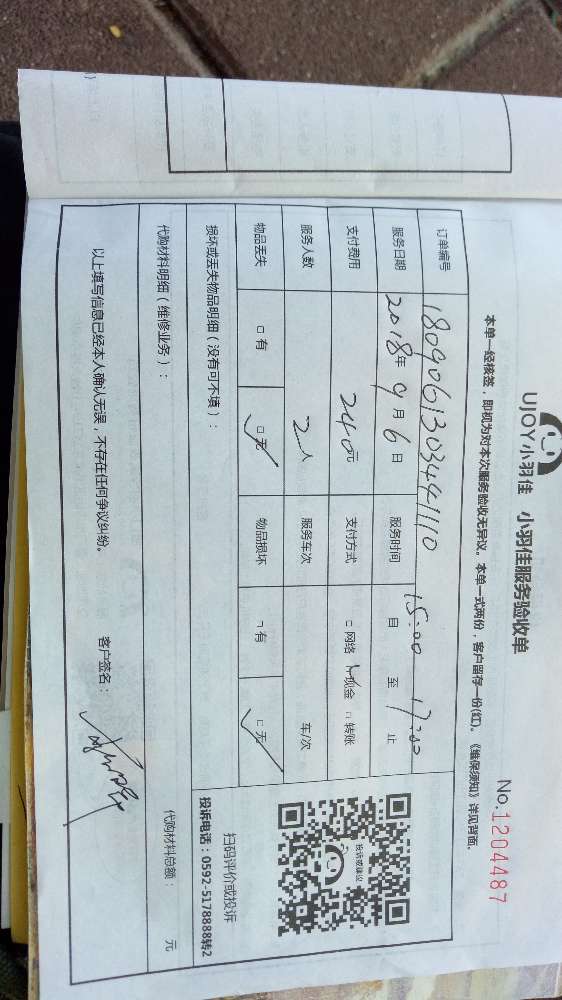 UJOY小羽佳 小羽佳服务验收单
No.1204487
本单一经核签，即视为对本次服务验收无异议。本单一式两份，客户留存一份(红)。《维保须知》详见背面。
订单编号 180906130344110
服务日期 2018年9月6日 服务时间 15:00 自 至 17:00 止
支付费用 240元 支付方式 □网络 ☑现金 □转账
服务人数 2人 服务车次 车/次
物品丢失 □有 ☑无 物品损坏 □有 ☑无
损坏或丢失物品明细（没有可不填）：
代购材料明细（维修业务）：
代购材料总额： 元
投诉或建议
扫码评价或投诉
投诉电话：0592-5178888转2
以上填写信息已经本人确认无误，不存在任何争议纠纷。
客户签名：